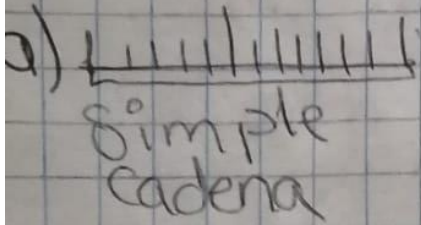 a)
simple
cadena